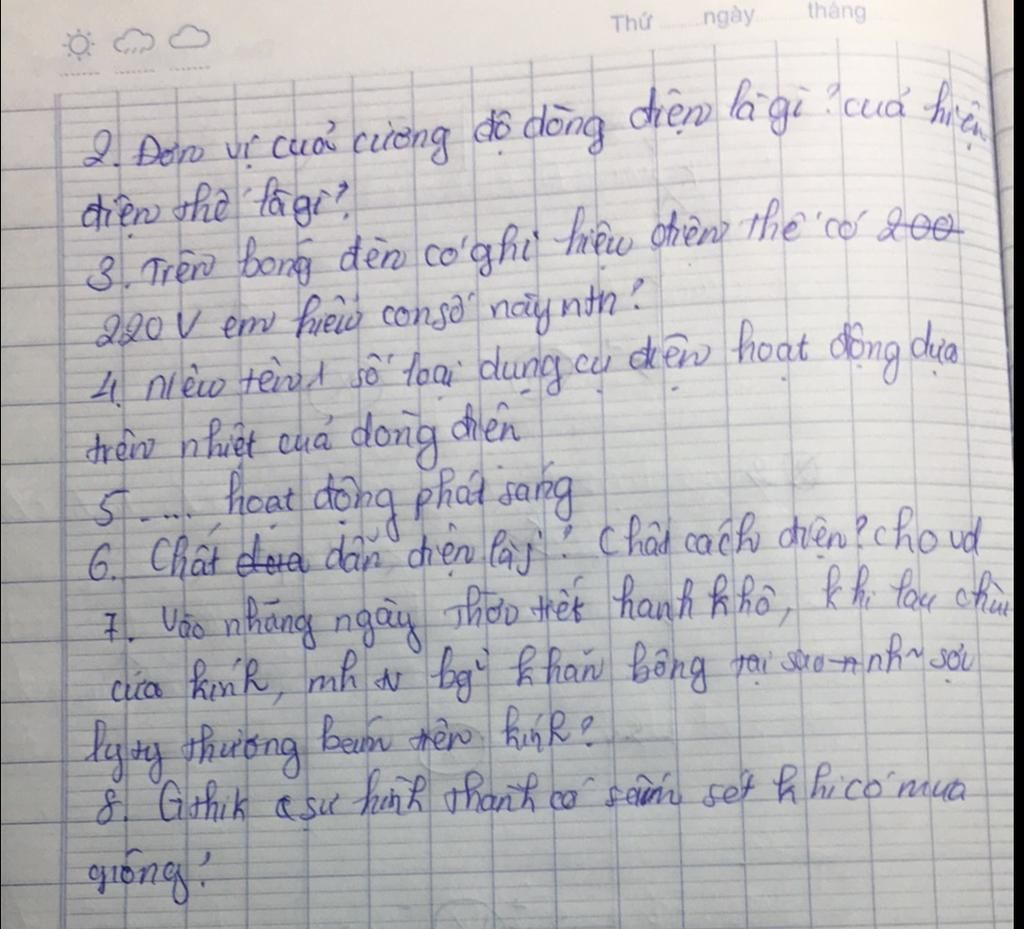 Thứ ngày tháng
2. Đơn vị cuả cường độ dòng điện là gì? cuả hiệu
điện thế là gì?
3. Trên bóng đèn có ghi hiệu điện thế có 200
220V em hiểu con số này ntn?
4. nlêu tên 1 số loại dụng cụ điện hoạt động dựa
trên nhiệt cuả dòng điện
5 .... hoạt động phát sáng
6. Chất dẫn điện là j? Chất cách điện? cho vd
7. Vào những ngày thời tiết hanh khô, khi lau chùi
cửa kính, mh bg khăn bông tại sao nh~ sợi
ly ty thường bám trên kính?
8. Gthik sự hình thành có sấm sét khi có mưa
giông?